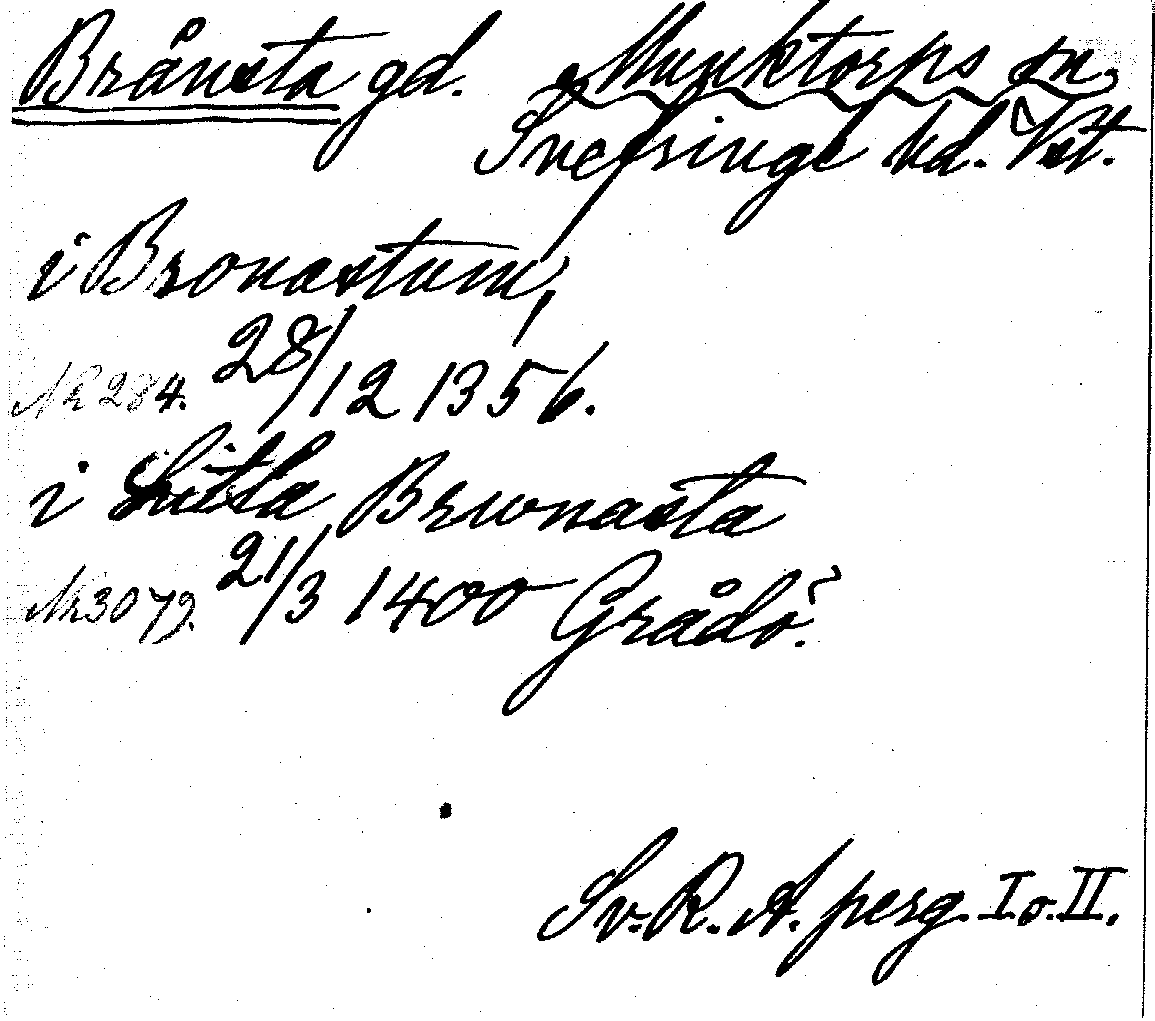 Brånsta gd. Munktorps sn.
Snefringe hd. Vstt.
i Bronastum,
NR 284. 28/12 1356.
i Litla Brwnasta
Nr 3079. 21/3 1400 Grådö.
Sv. R. A. perg. I o. II.